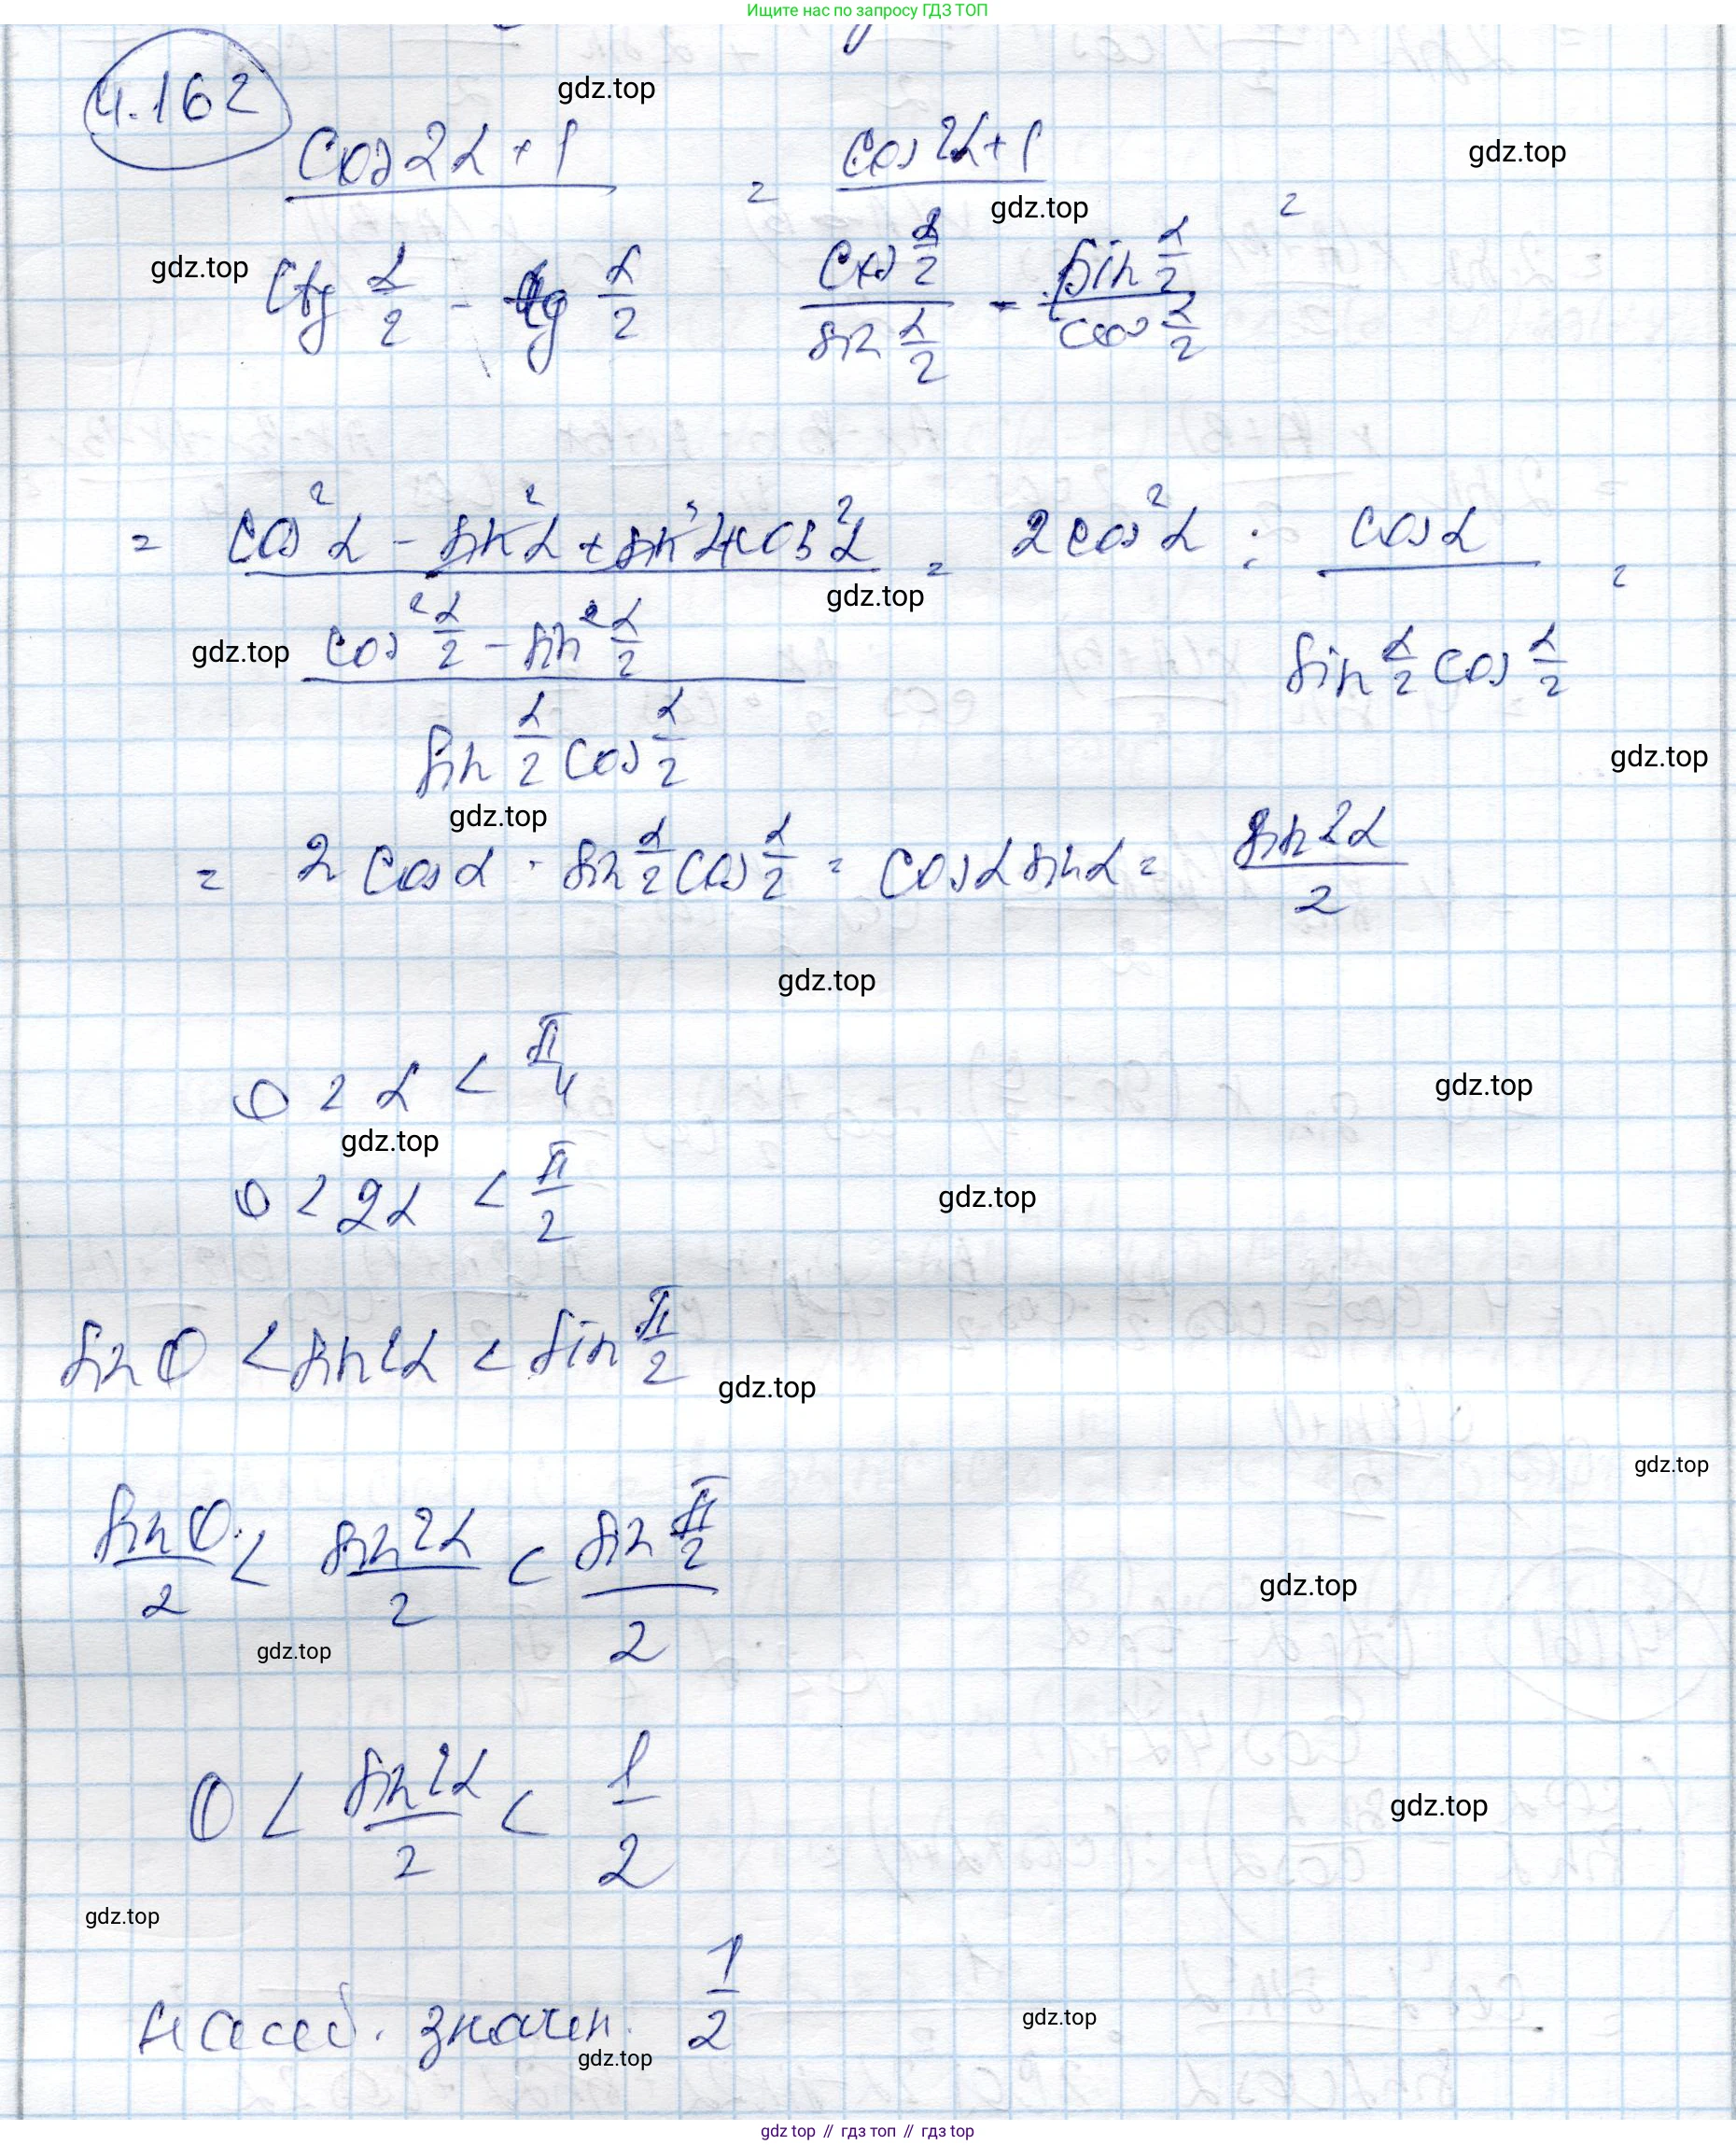 Ищите нас по запросу ГДЗ ТОП
4.162
gdz.top
(cos 2α + 1) / (ctg α/2 - tg α/2) = (cos 2α + 1) / (cos α/2 / sin α/2 - sin α/2 / cos α/2) =
gdz.top
gdz.top
gdz.top
= (cos²α - sin²α + sin²α + cos²α) / ((cos² α/2 - sin² α/2) / (sin α/2 cos α/2)) = 2 cos²α : cos α / (sin α/2 cos α/2) =
gdz.top
gdz.top
gdz.top
gdz.top
= 2 cos α · sin α/2 cos α/2 = cos α sin α = sin 2α / 2
gdz.top
0 < α < π/4
gdz.top
gdz.top
0 < 2α < π/2
gdz.top
sin 0 < sin 2α < sin π/2
gdz.top
gdz.top
sin 0 / 2 < sin 2α / 2 < sin π/2 / 2
gdz.top
gdz.top
0 < sin 2α / 2 < 1/2
gdz.top
gdz.top
значен. 1/2
gdz.top
gdz.top
gdz.top // гдз топ // гдз top